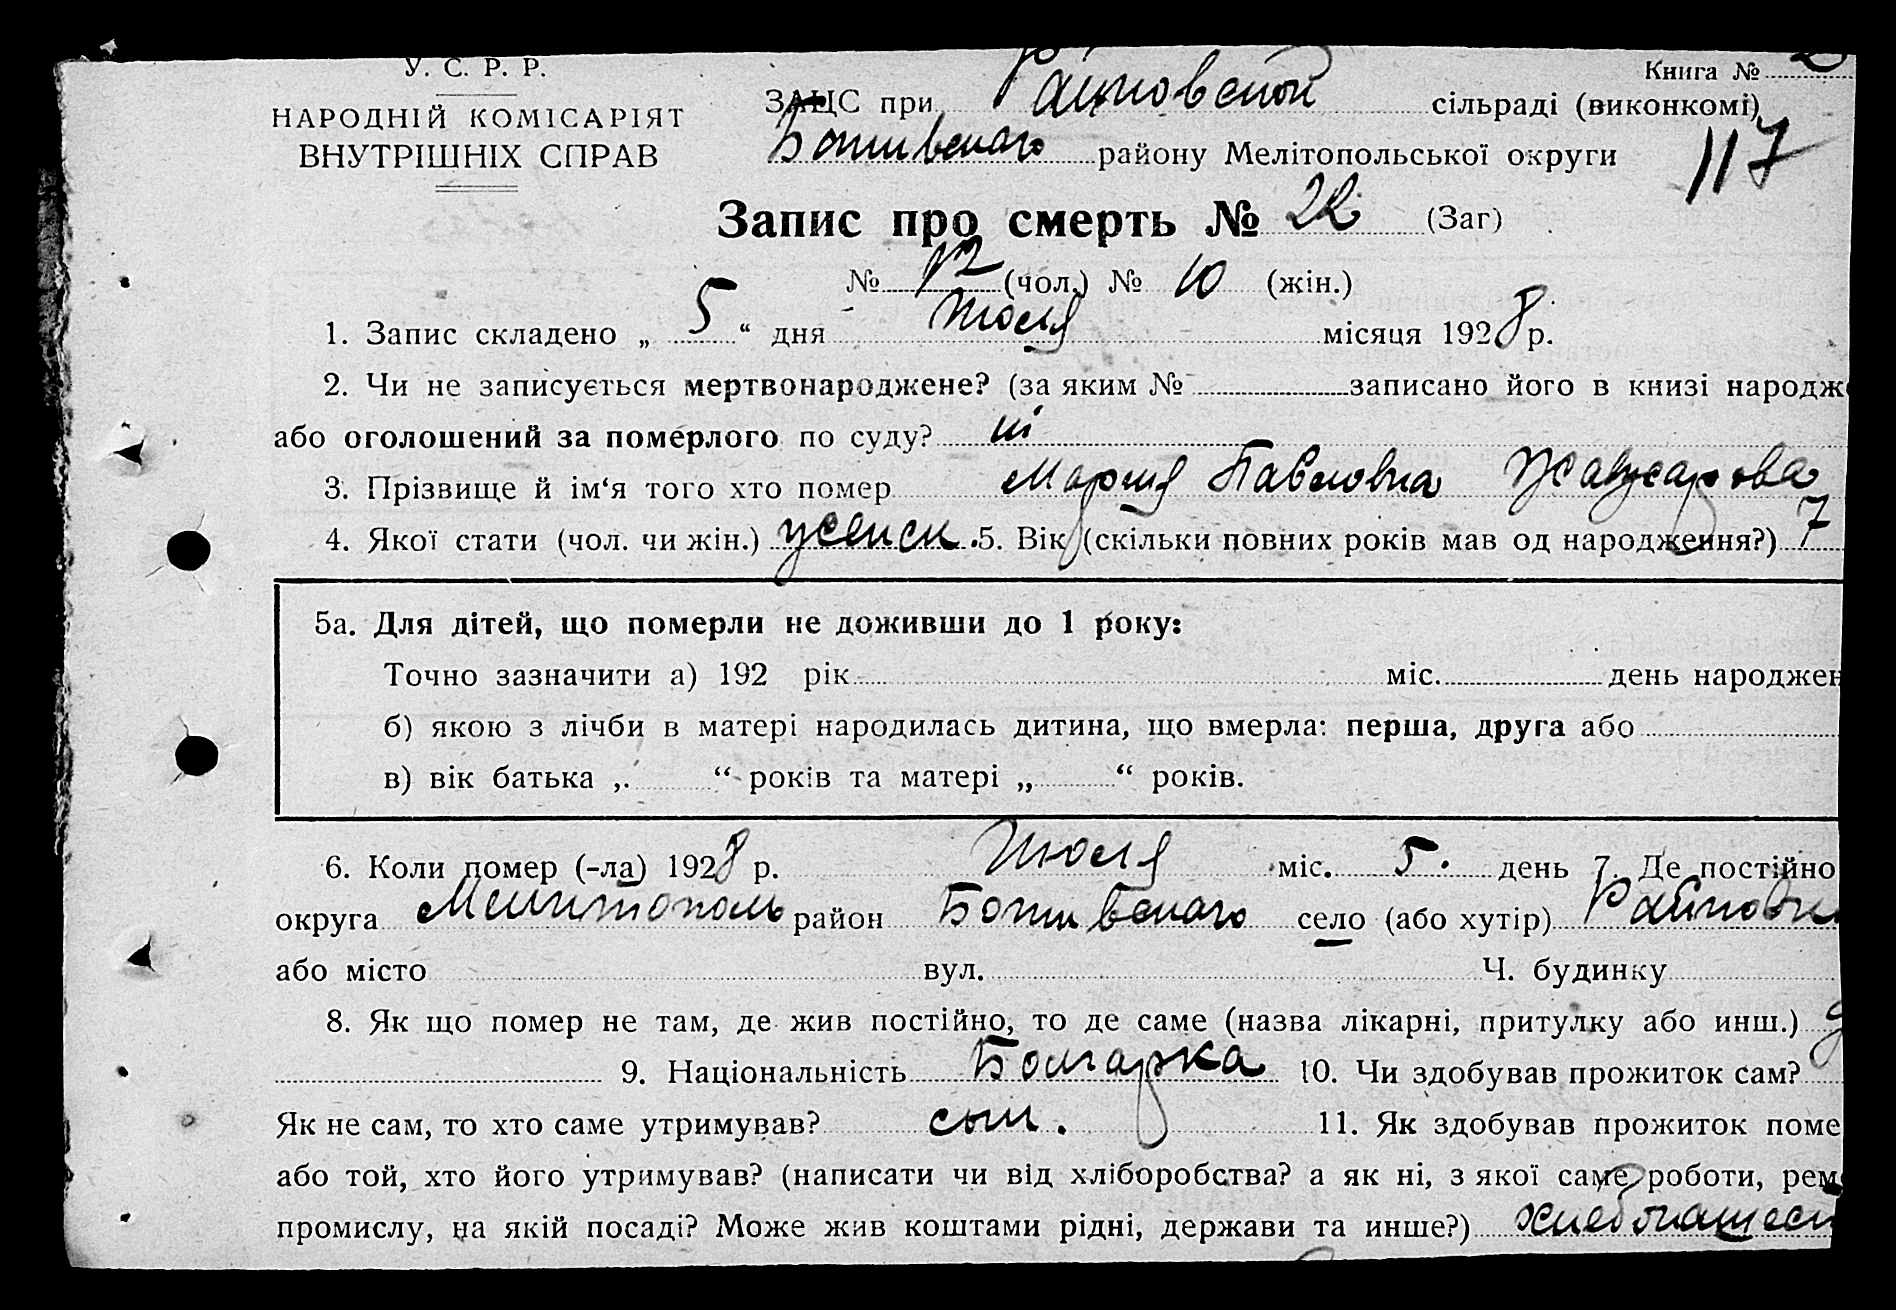 У. С. Р. Р.
НАРОДНІЙ КОМІСАРІЯТ
ВНУТРІШНІХ СПРАВ
Книга №
ЗАЦС при Райновской сільраді (виконкомі)
Ботивскаго району Мелітопольської округи
117
Запис про смерть № 22 (Заг)
№ 12 (чол.) № 10 (жін.)
1. Запис складено „ 5 “ дня Июля місяця 1928 р.
2. Чи не записується мертвонароджене? (за яким № записано його в книзі народж
або оголошений за померлого по суду? ні
3. Прізвище й ім‘я того хто помер Мария Павловна
4. Якої стати (чол. чи жін.) женск. 5. Вік (скільки повних років мав од народження?) 7
5а. Для дітей, що померли не доживши до 1 року:
Точно зазначити а) 192 рік міс. день народжен
б) якою з лічби в матері народилась дитина, що вмерла: перша, друга або
в) вік батька „ “ років та матері „ “ років.
6. Коли помер (-ла) 1928 р. Июля міс. 5. день 7. Де постійно
округа Мелитополь район Ботивскаго село (або хутір) Райновк
або місто вул. Ч. будинку
8. Як що помер не там, де жив постійно, то де саме (назва лікарні, притулку або инш.)
9. Національність Болгарка 10. Чи здобував прожиток сам?
Як не сам, то хто саме утримував? сын. 11. Як здобував прожиток поме
або той, хто його утримував? (написати чи від хліборобства? а як ні, з якої саме роботи, рем
промислу, на якій посаді? Може жив коштами рідні, держави та инше?) хлебопашес